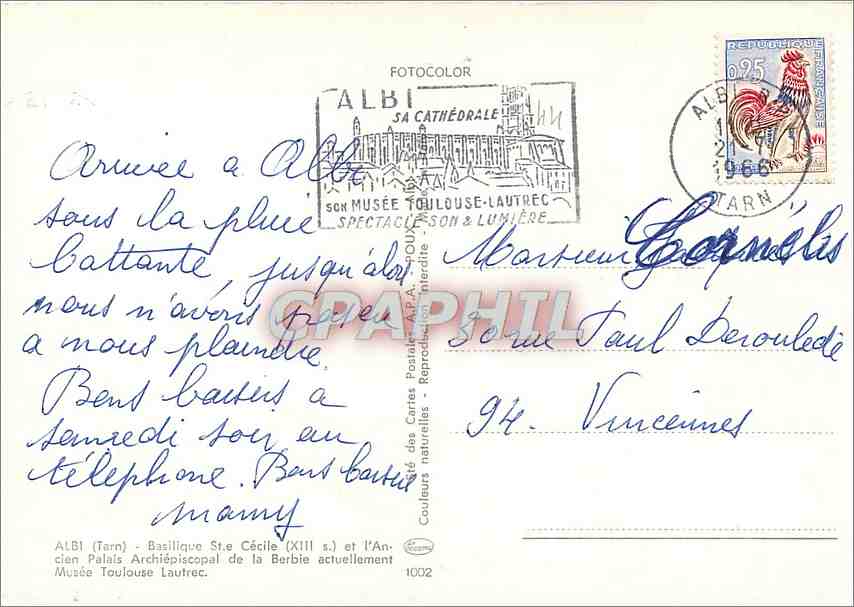 FOTOCOLOR
ALBI
SA CATHÉDRALE
SON MUSÉE TOULOUSE-LAUTREC
SPECTACLE SON & LUMIÈRE
REPUBLIQUE FRANÇAISE
0,25
ALBI
21
1966
TARN
Arrivée a Albi
sous la pluie
battante, jusqu'alors
nous n'avons pas eu
a nous plaindre.
Bons baisers a
samedi soir au
téléphone. Bons baisers
mamy
Monsieur Cornélis
30 rue Paul Deroulede
94. Vincennes
CPAPHIL
Société des Cartes Postales A.P.A. - POUX
Couleurs naturelles - Reproduction interdite
ALBI (Tarn) - Basilique St.e Cécile (XIII s.) et l'An-
cien Palais Archiépiscopal de la Berbie actuellement
Musée Toulouse Lautrec.
1002